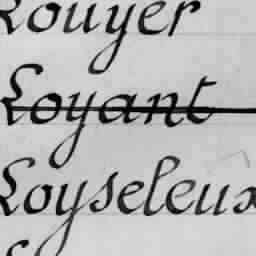 Louyer
Loyant
Loyseleux